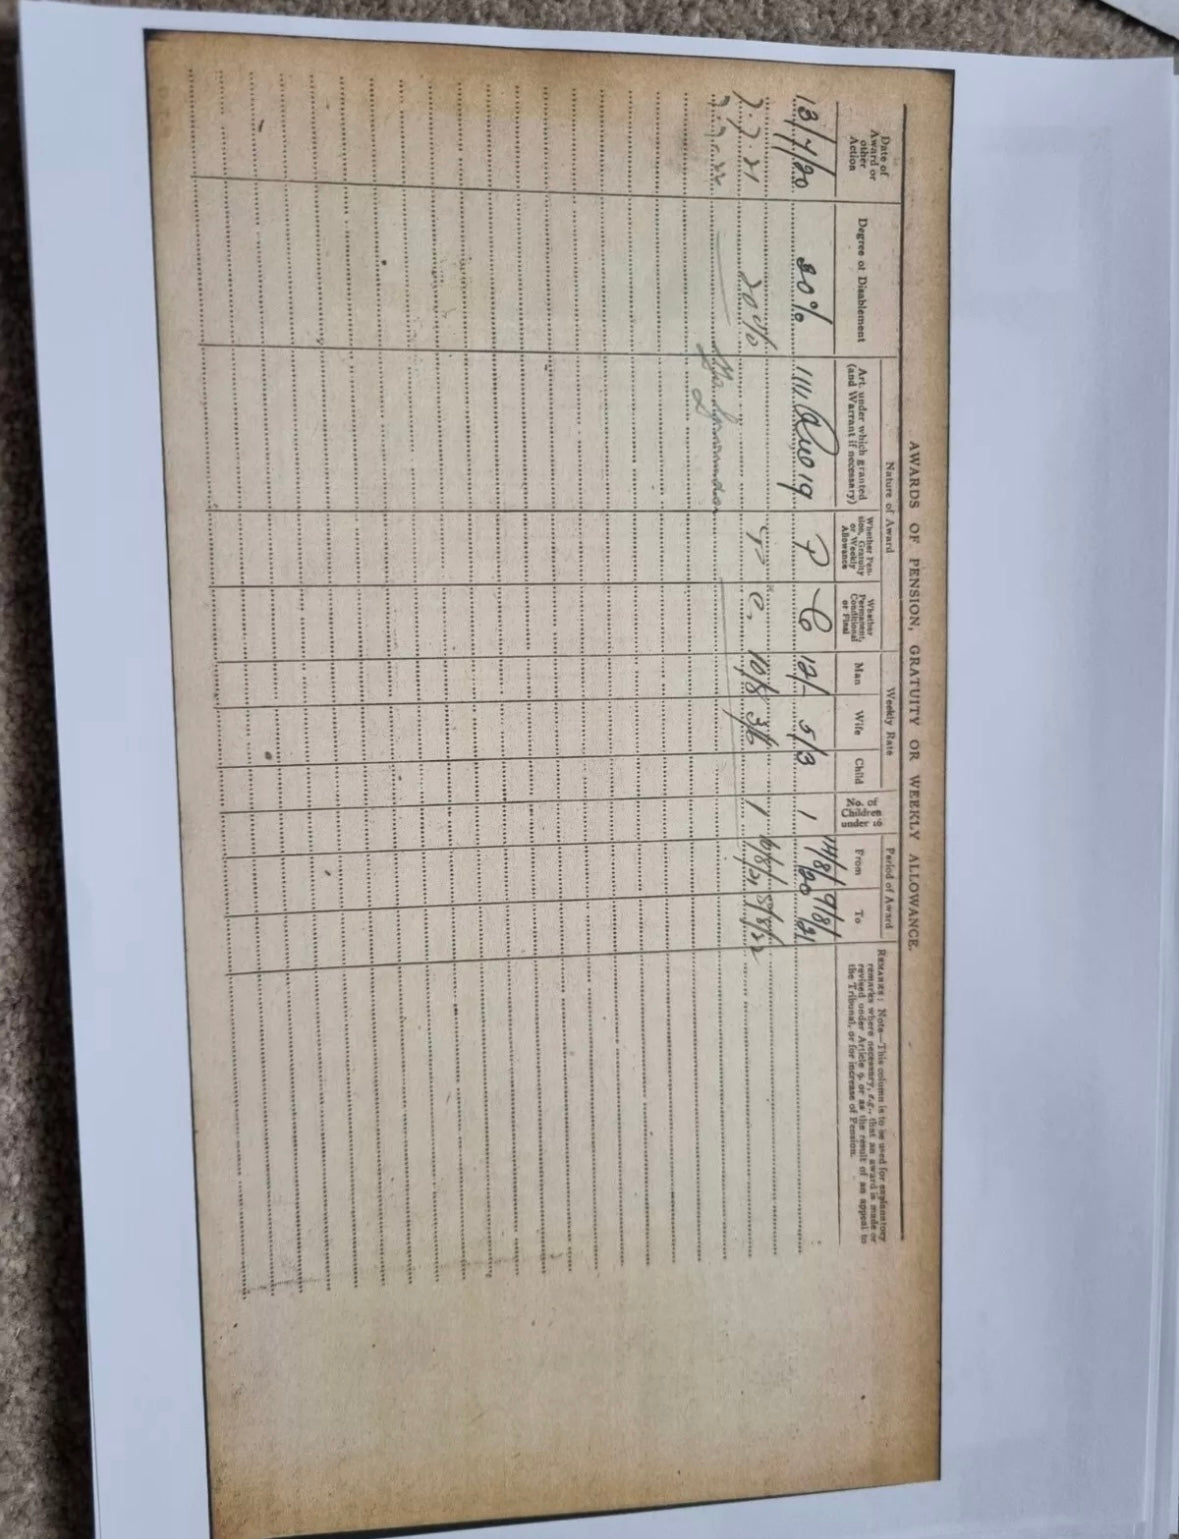 AWARDS OF PENSION, GRATUITY OR WEEKLY ALLOWANCE.
Date of Award or other Action
Degree of Disablement
Nature of Award
Art. under which granted (and Warrant if necessary)
Whether Pension, Gratuity or Weekly Allowance
Whether Permanent, Conditional or Final
Weekly Rate
Man
Wife
Child
No. of Children under 16
Period of Award
From
To
REMARKS: Note—This column is to be used for explanatory remarks where necessary, e.g., that an award is made or revised under Article 9, or as the result of an appeal to the Tribunal, or for increase of Pension.
13/7/20 20% 19 P C 12/- 5/3 1 14/8/20 9/8/21
7.7.21 20% P C. 10/8 3/6 1 10/8/21 15/8/22